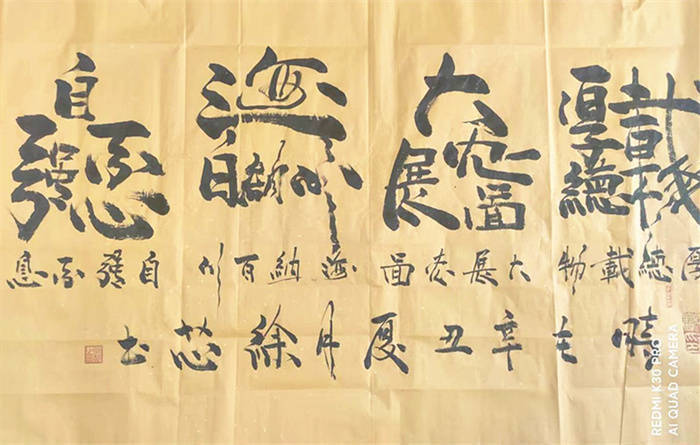 厚德載物
大展宏圖
海納百川
自強不息
厚德載物 大展宏圖 海納百川 自強不息
時在辛丑夏月徐芯书
REDMI K30 PRO
AI QUAD CAMERA